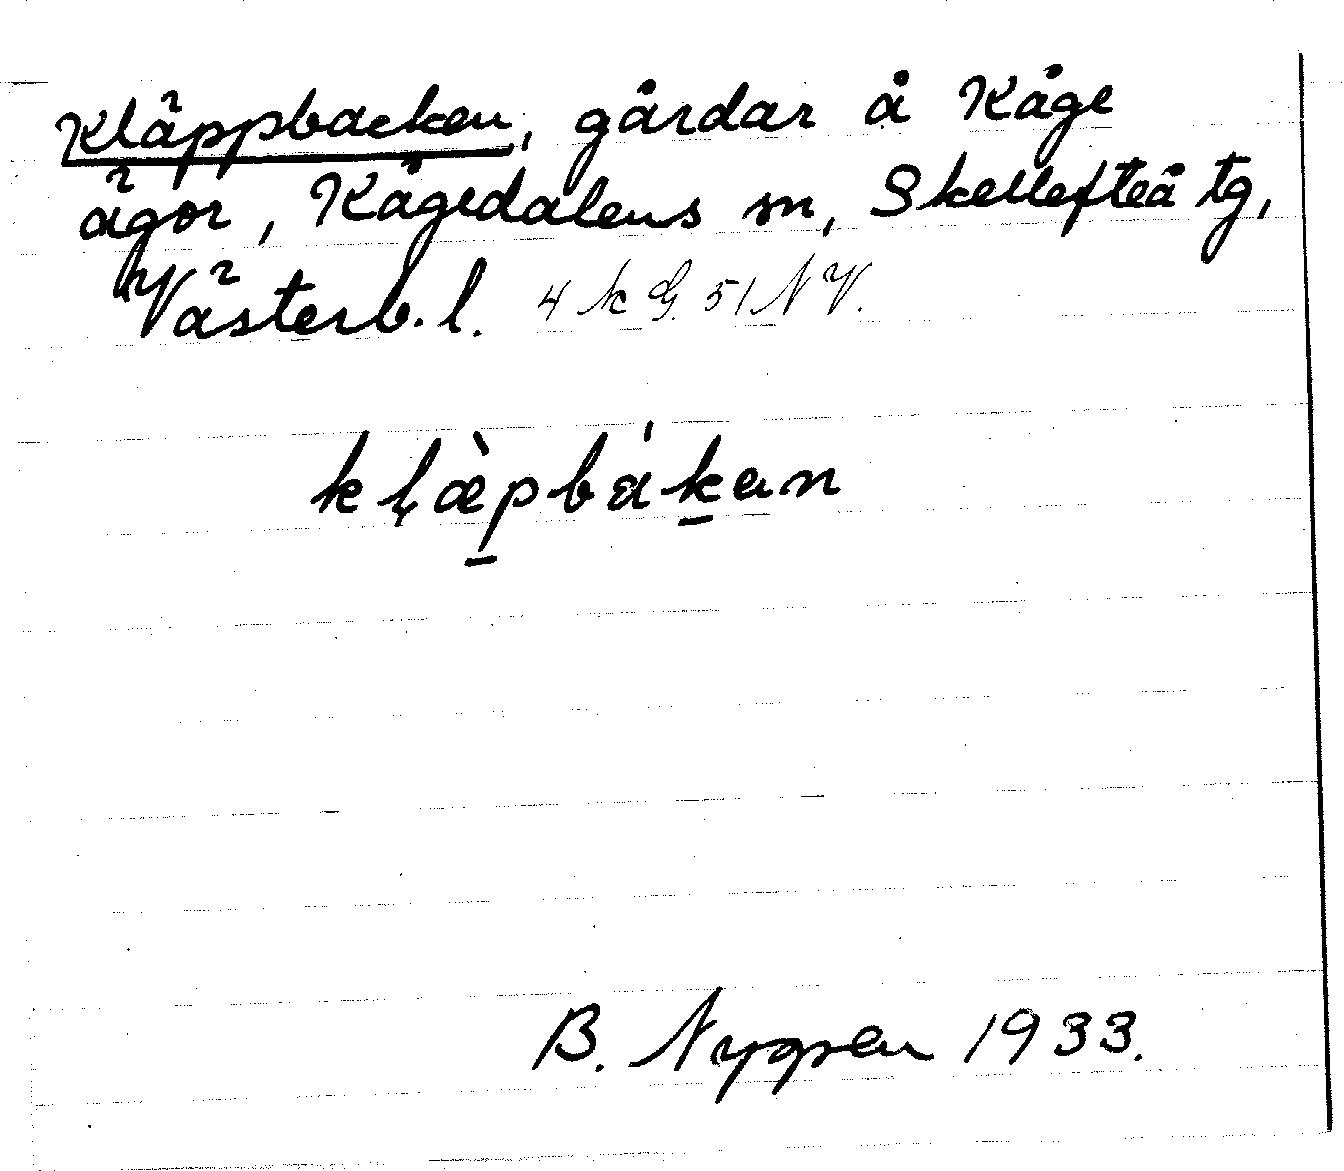 Kläppbacken, gårdar å Kåge
ägor, Kågedalens sn, Skellefteå tg,
Västerb. l. 4 k G. 51 N V.
kḷæ̀p̱bák̠en
B. Nygren 1933.